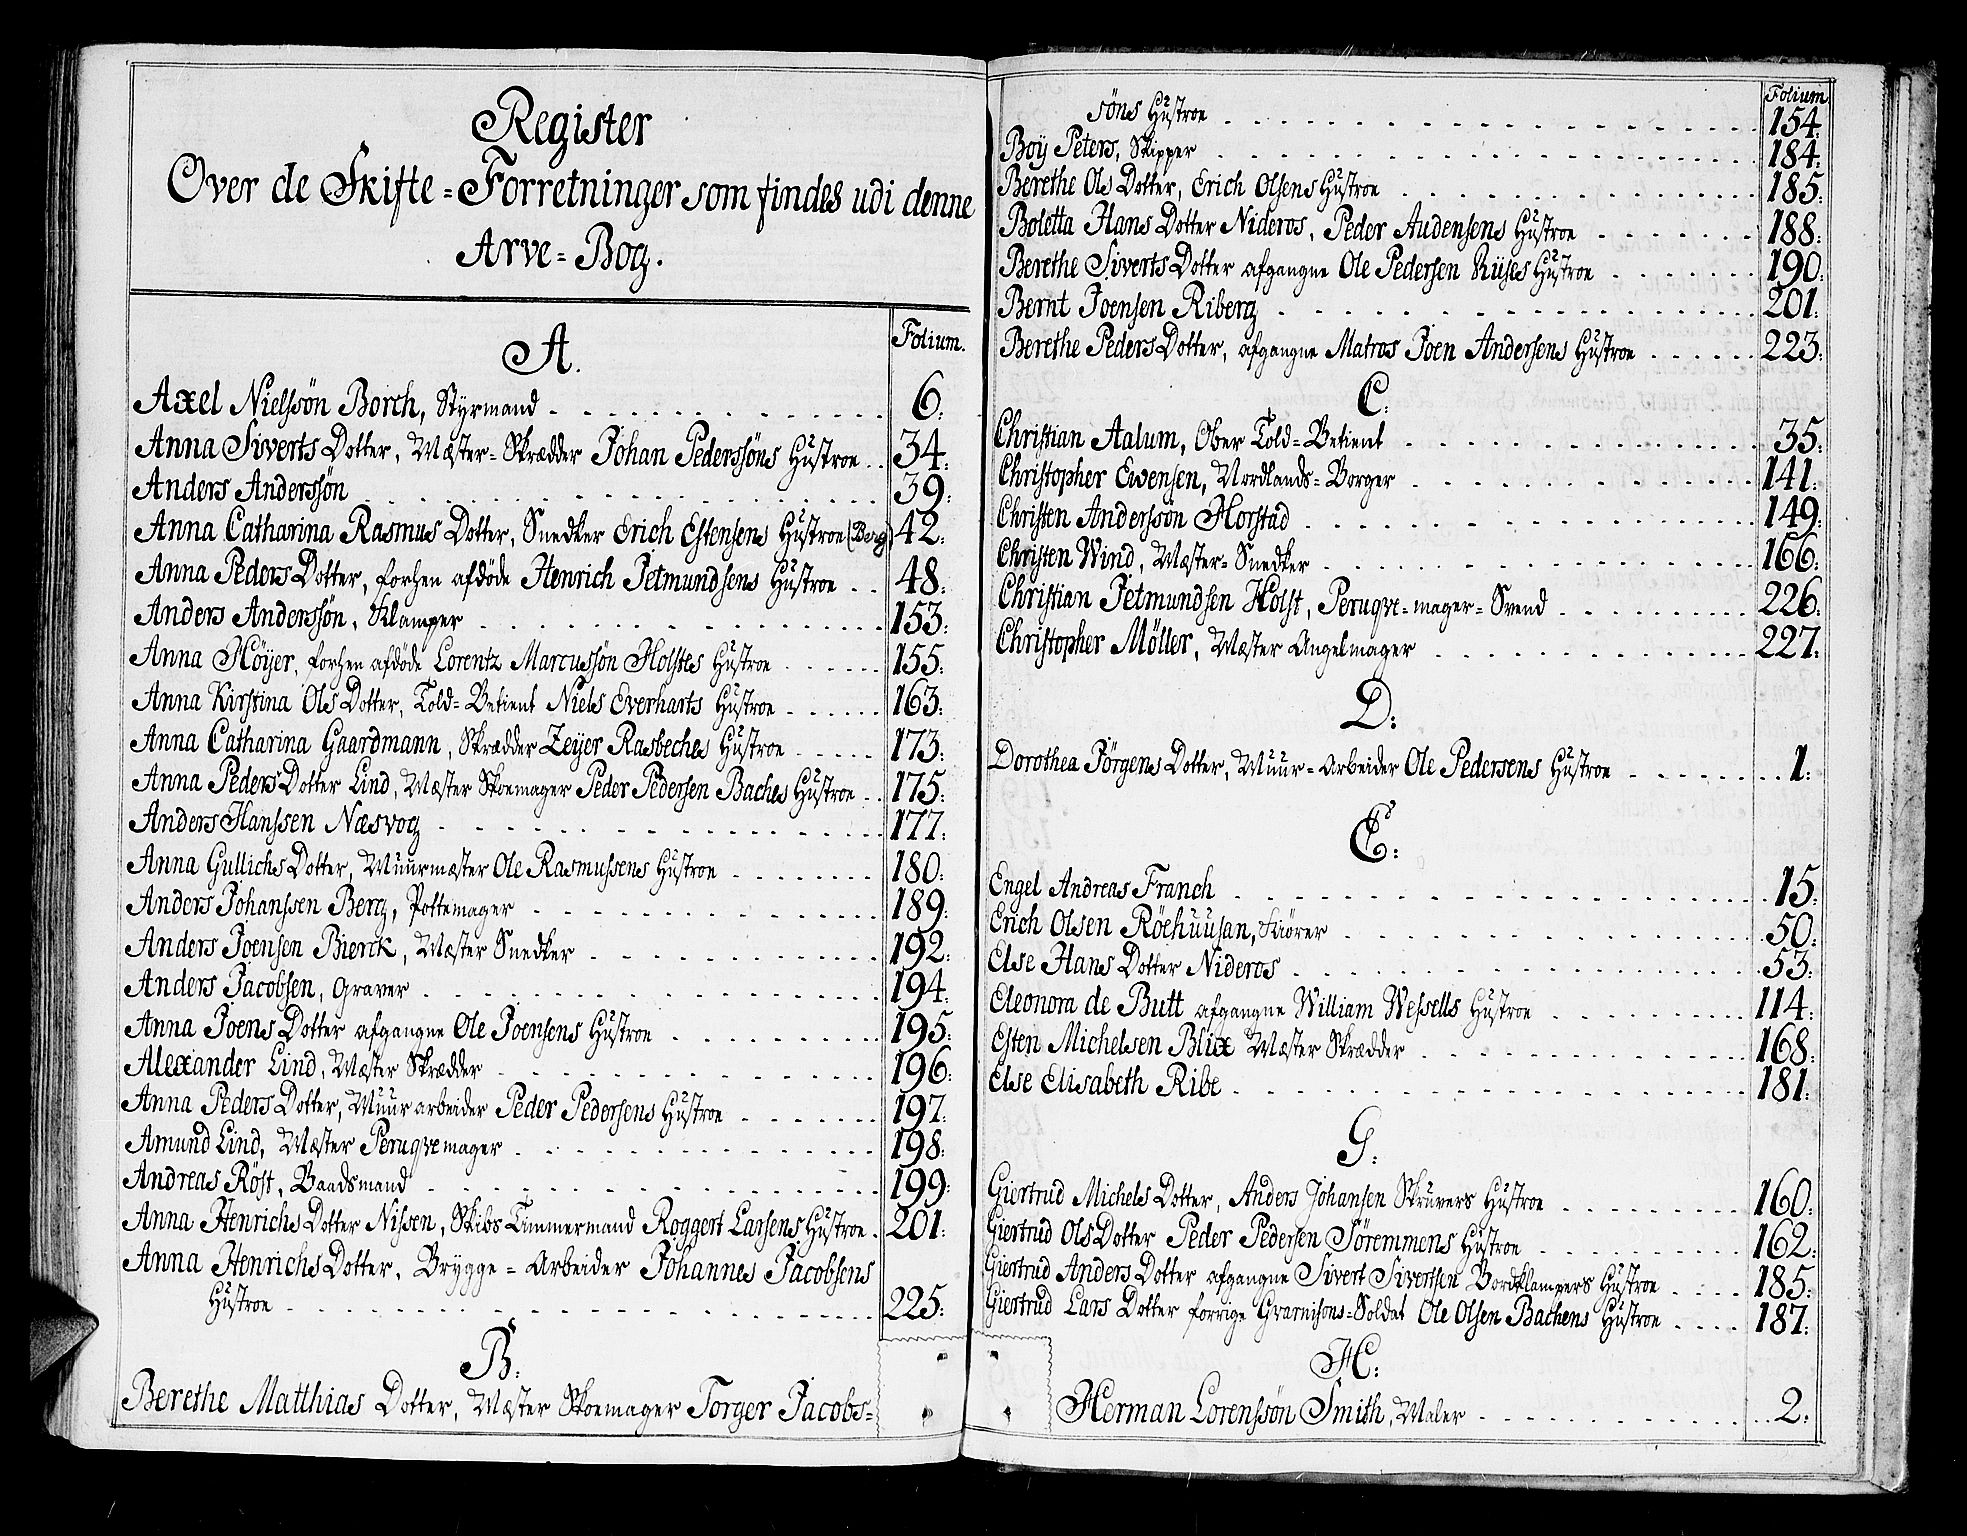 Register
Over de Skifte=Forretninger som findes udi denne
Arve=Bog.
Folium.
A.
Axel Nielssön Borch, Styrmand 6.
Anna Siverts Dotter, Mæster=Skrædder Johan Pederssöns Hŭstroe 34.
Anders Anderssön 39.
Anna Catharina Rasmus Dotter, Snedker Erich Estensens Hŭstroe (Berg) 42.
Anna Peders Dotter, forhen afdöde Henrich Jetmundsens Hŭstroe 48.
Anders Anderssön, Klamper 153.
Anna Höyer, forhen afdöde Lorentz Marcussön Holstes Hŭstroe 155.
Anna Kirstina Ols Dotter, Told=Betient Niels Everharts Hŭstroe 163.
Anna Catharina Gaardmann, Skrædder Zeyer Rasbeches Hŭstroe 173.
Anna Peders Dotter Lind, Mæster Skoemager Peder Pedersen Baches Hŭstroe 175.
Anders Hanssen Næsvog 177.
Anna Gullichs Dotter, Muurmæster Ole Rasmussens Hŭstroe 180.
Anders Johanssen Berg, Pottemager 189.
Anders Joensen Bierck, Mæster Snedker 192.
Anders Jacobsen, Graver 194.
Anna Joens Dotter afgangne Ole Joensens Hŭstroe 195.
Alexander Lind, Mæster Skrædder 196.
Anna Peders Dotter, Muur arbeider Peder Pedersens Hŭstroe 197.
Amund Lind, Mæster Peruqvemager 198.
Andreas Röst, Baadsmand 199.
Anna Henrichs Dotter Nissen, Skibs Timmermand Roggert Larsens Hŭstroe 201.
Anna Henrichs Dotter, Brygge=Arbeider Johannes Jacobsens
Hŭstroe 225.
B.
Berethe Matthias Dotter, Mæster Skoemager Torger Jacobs=
Folium
söns Hŭstroe 154.
Boÿ Peters, Skipper 184.
Berethe Ols Dotter, Erich Olsens Hŭstroe 185.
Boletta Hans Dotter Nideros, Peder Audensens Hŭstroe 188.
Berethe Siverts Dotter afgangne Ole Pedersen Rüses Hŭstroe 190.
Bernt Joensen Riberg 201.
Berethe Peders Dotter, afgangne Matros Joen Andersens Hŭstroe 223.
C.
Christian Aalum, Ober Told=Betient 35.
Christopher Ewensen, Nordlands=Borger 141.
Christen Anderssön Horstad 149.
Christen Wind, Mæster=Snedker 166.
Christian Jetmundsen Holst, Peruqve=mager=Svend 226.
Christopher Möller, Mæster Angelmager 227.
D.
Dorothea Jörgens Dotter, Muur=Arbeider Ole Pedersens Hŭstroe 1.
E.
Engel Andreas Franch 15.
Erich Olsen Röehuusan, Kiörer 50.
Else Hans Dotter Nideros 53.
Eleonora de Butt afgangne William Wessells Hŭstroe 114.
Esten Michelsen Blix Mæster Skrædder 168.
Else Elisabeth Ribe 181.
G.
Giertrud Michels Dotter, Anders Johansen Skrŭvers Hŭstroe 160.
Giertrud Ols Dotter Peder Pedersen Söremmens Hŭstroe 162.
Giertrud Anders Dotter afgangne Sivert Sivertsen Bordklampers Hŭstroe 185.
Giertrud Lars Dotter forrige Gvarnisons=Soldat Ole Olsen Bachens Hŭstroe 187.
H.
Herman Lorenssön Smith, Maler 2.